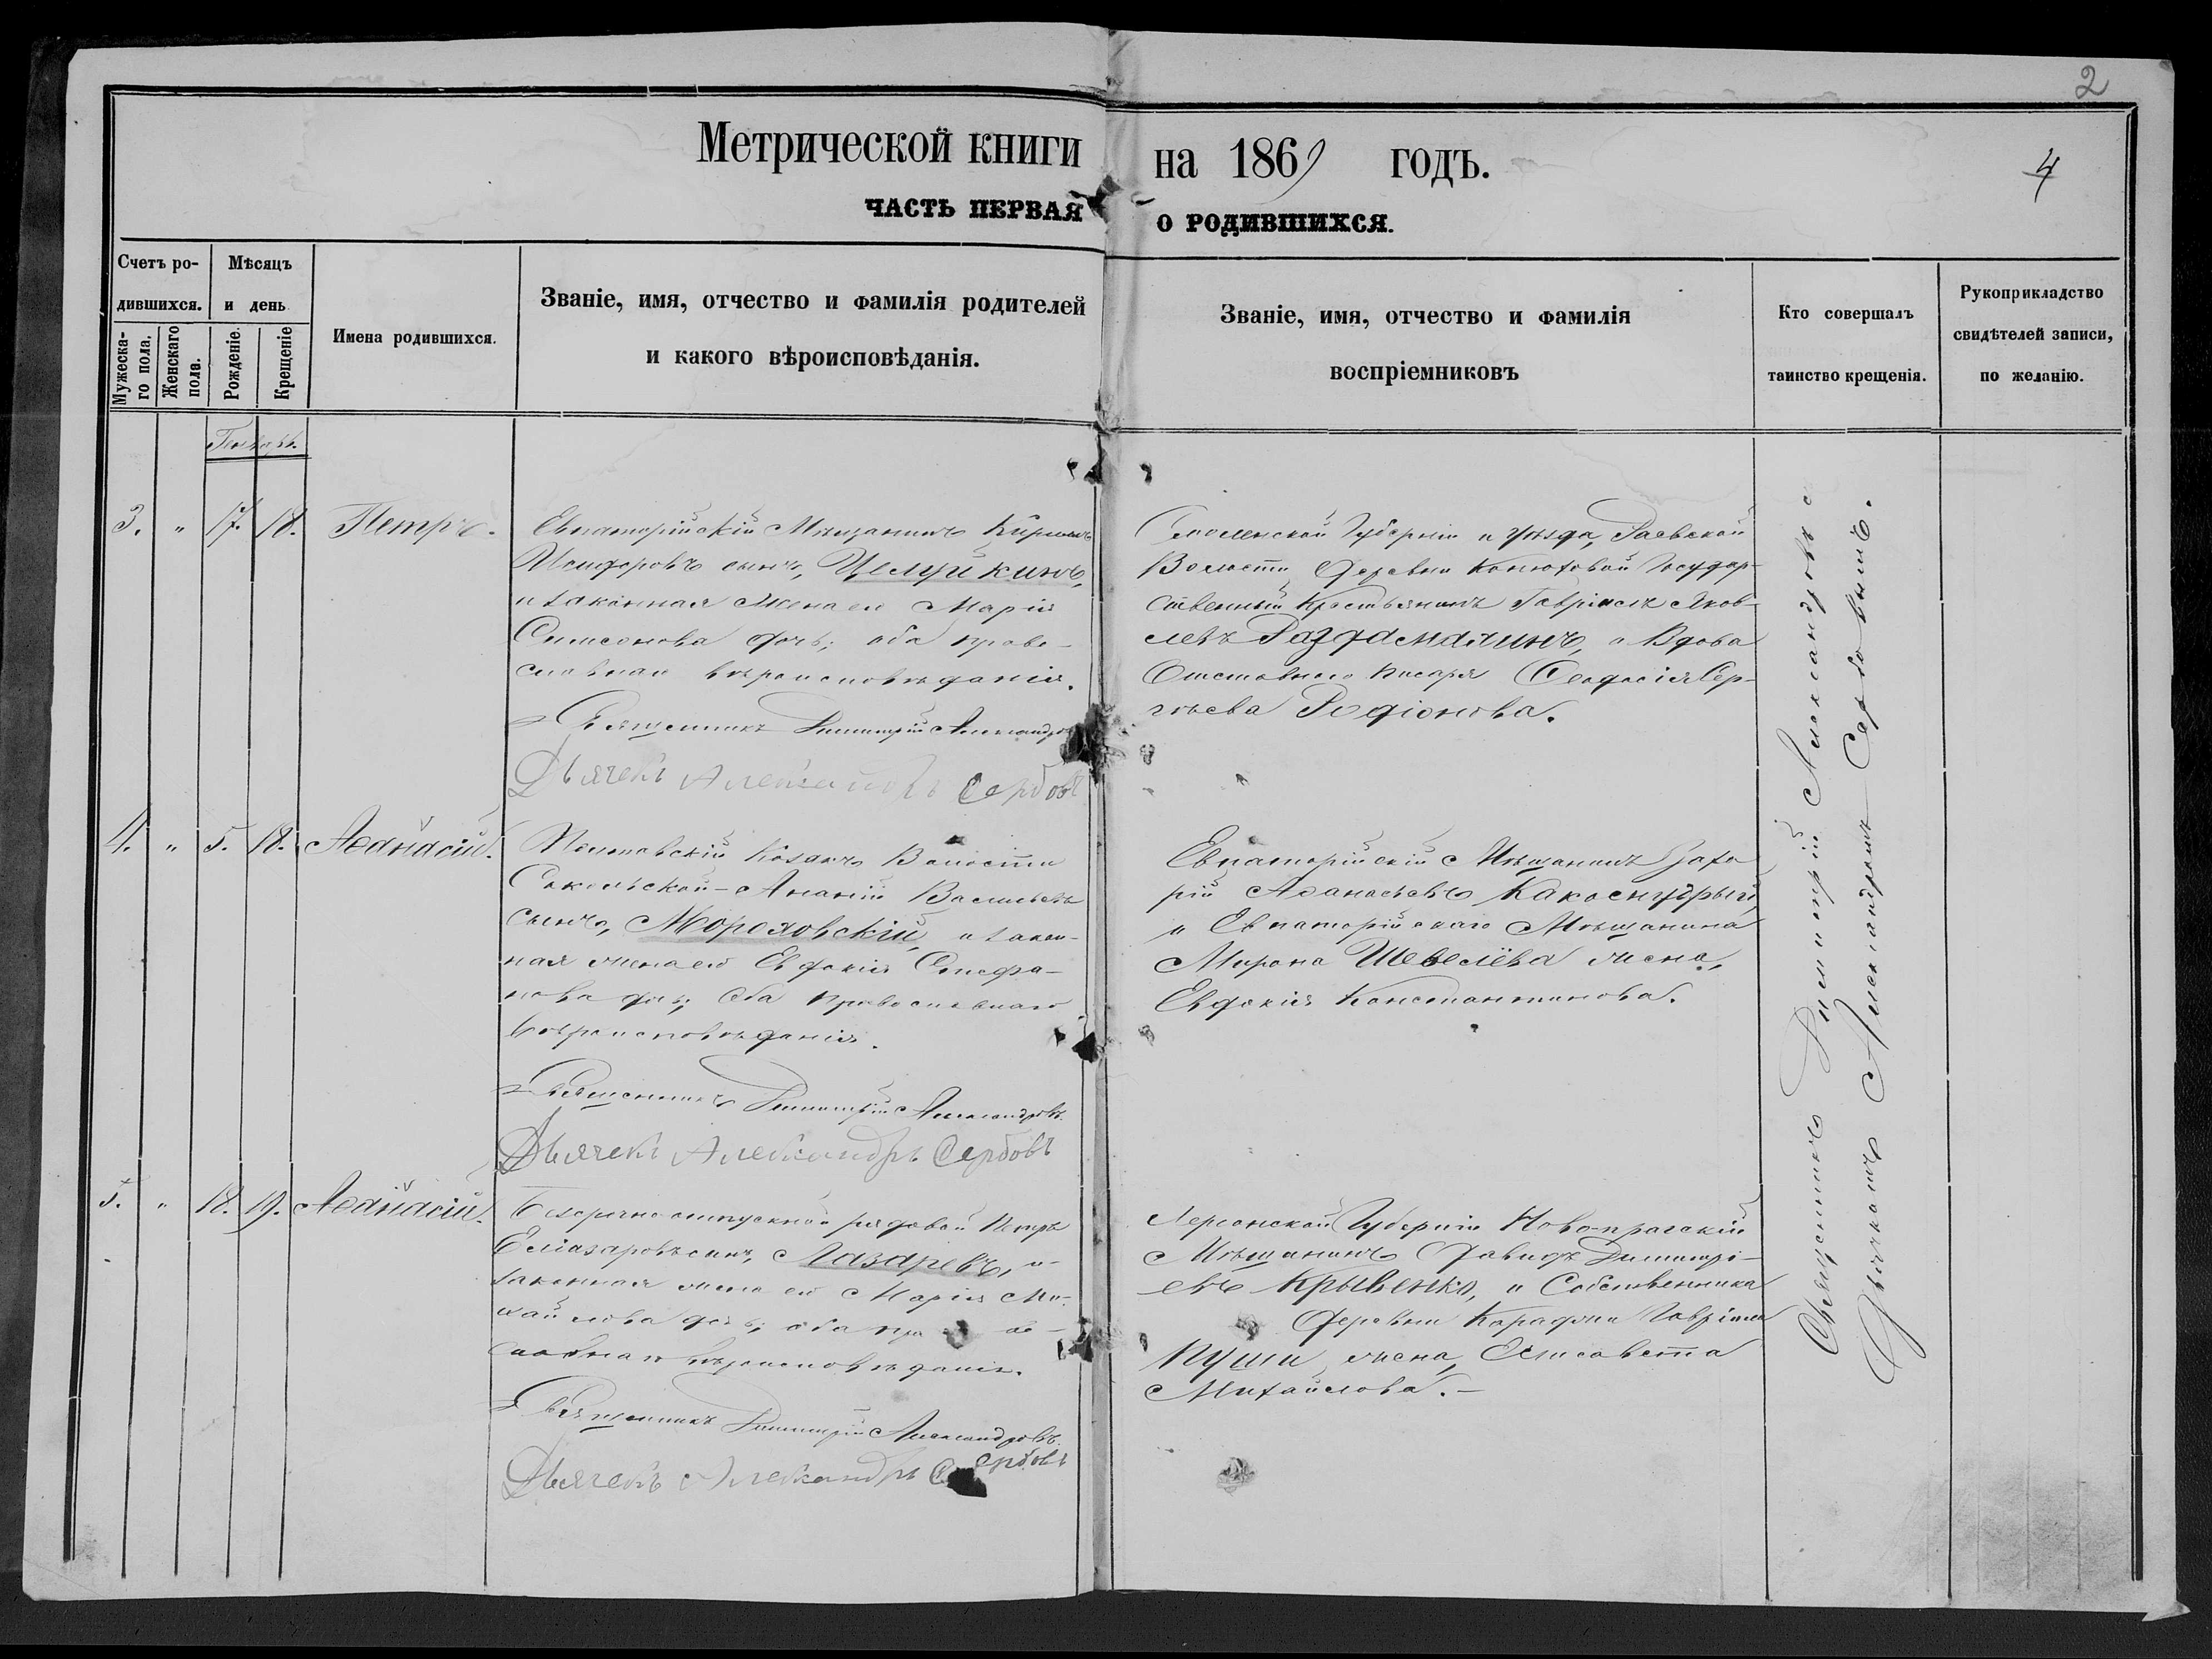 2
Метрической книги на 1869 годъ.
4
ЧАСТЬ ПЕРВАЯ О РОДИВШИХСЯ.
Счетъ ро-
дившихся.
Мужеска-
го пола.
Женскаго
пола.
Мѣсяцъ
и день
Рожденіе.
Крещеніе
Имена родившихся.
Званіе, имя, отчество и фамилія родителей
и какого вѣроисповѣданія.
Званіе, имя, отчество и фамилія
воспріемниковъ
Кто совершалъ
таинство крещенія.
Рукоприкладство
свидѣтелей записи,
по желанію.
Генварь.
3. " 17. 18. Петръ.
Евпаторійскій Мѣщанинъ
сынъ, Целуйкинъ,
и законная жена его Марія
Симеонова дочь; оба право-
славнаго вѣроисповѣданія.
Священникъ Димитрій Александровъ
Дьячекъ Александръ Сербовъ
Смоленской Губерніи и уѣзда,
Волости, Деревни Государ-
ственный Крестьянинъ Гавріилъ Яков-
левъ и Вдова
Отставнаго Писаря Ѳеодосія Сер-
гѣева Родіонова.
4. " 5. 18. Аѳанасій.
Полтавскій Козакъ Волости
Сокольской - Ананій Васильевъ
сынъ, и закон-
ная жена его Евдокія Стефа-
нова дочь; Оба Православнаго
Вѣроисповѣданія.
Священникъ Димитрій Александровъ.
Дьячекъ Александръ Сербовъ
Евпаторійскій Мѣщанинъ Заха-
рій Аѳанасьевъ
и Евпаторійскаго Мѣщанина
Мирона Шевелёва жена,
Евдокія Константинова.
5. " 18. 19. Аѳанасій.
Безсрочноотпускной рядовой Петръ
Еліазаровъ сынъ, Лазаревъ, и
законная жена его Марія Ми-
хайлова дочь; оба право-
славнаго вѣроисповѣданія.
Священникъ Димитрій Александровъ.
Дьячекъ Александръ Сербовъ
Херсонской Губерніи Новопрагскій
Мѣщанинъ Давидъ Димитрі-
евъ Крывенко, и Собственника
Деревни Гавріила
Пуши жена, Елисавета
Михайлова. -
Священникъ Димитрій Александровъ с
Дьячкомъ Александромъ Сербовымъ.